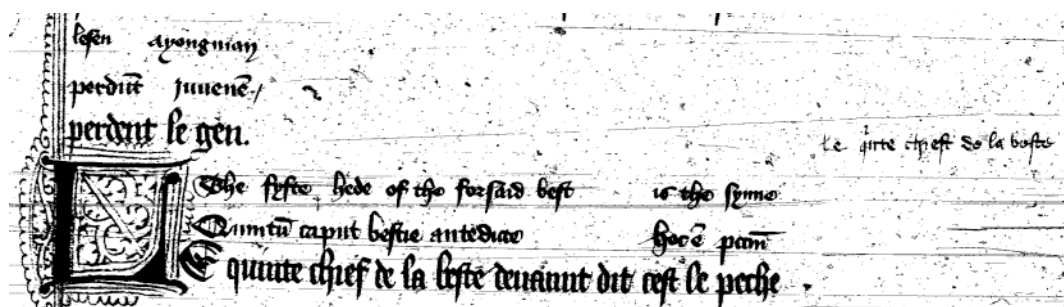 lesen ayongman
perdūt juuenē
perdent le gen.
le qinte chieff de la beste
The fyfte hede of the forsaid best is the synne
Quintū caput bestie antedicte hoc ē pccm̄
LE quinte chief de la beste deuaunt dit cest le peche